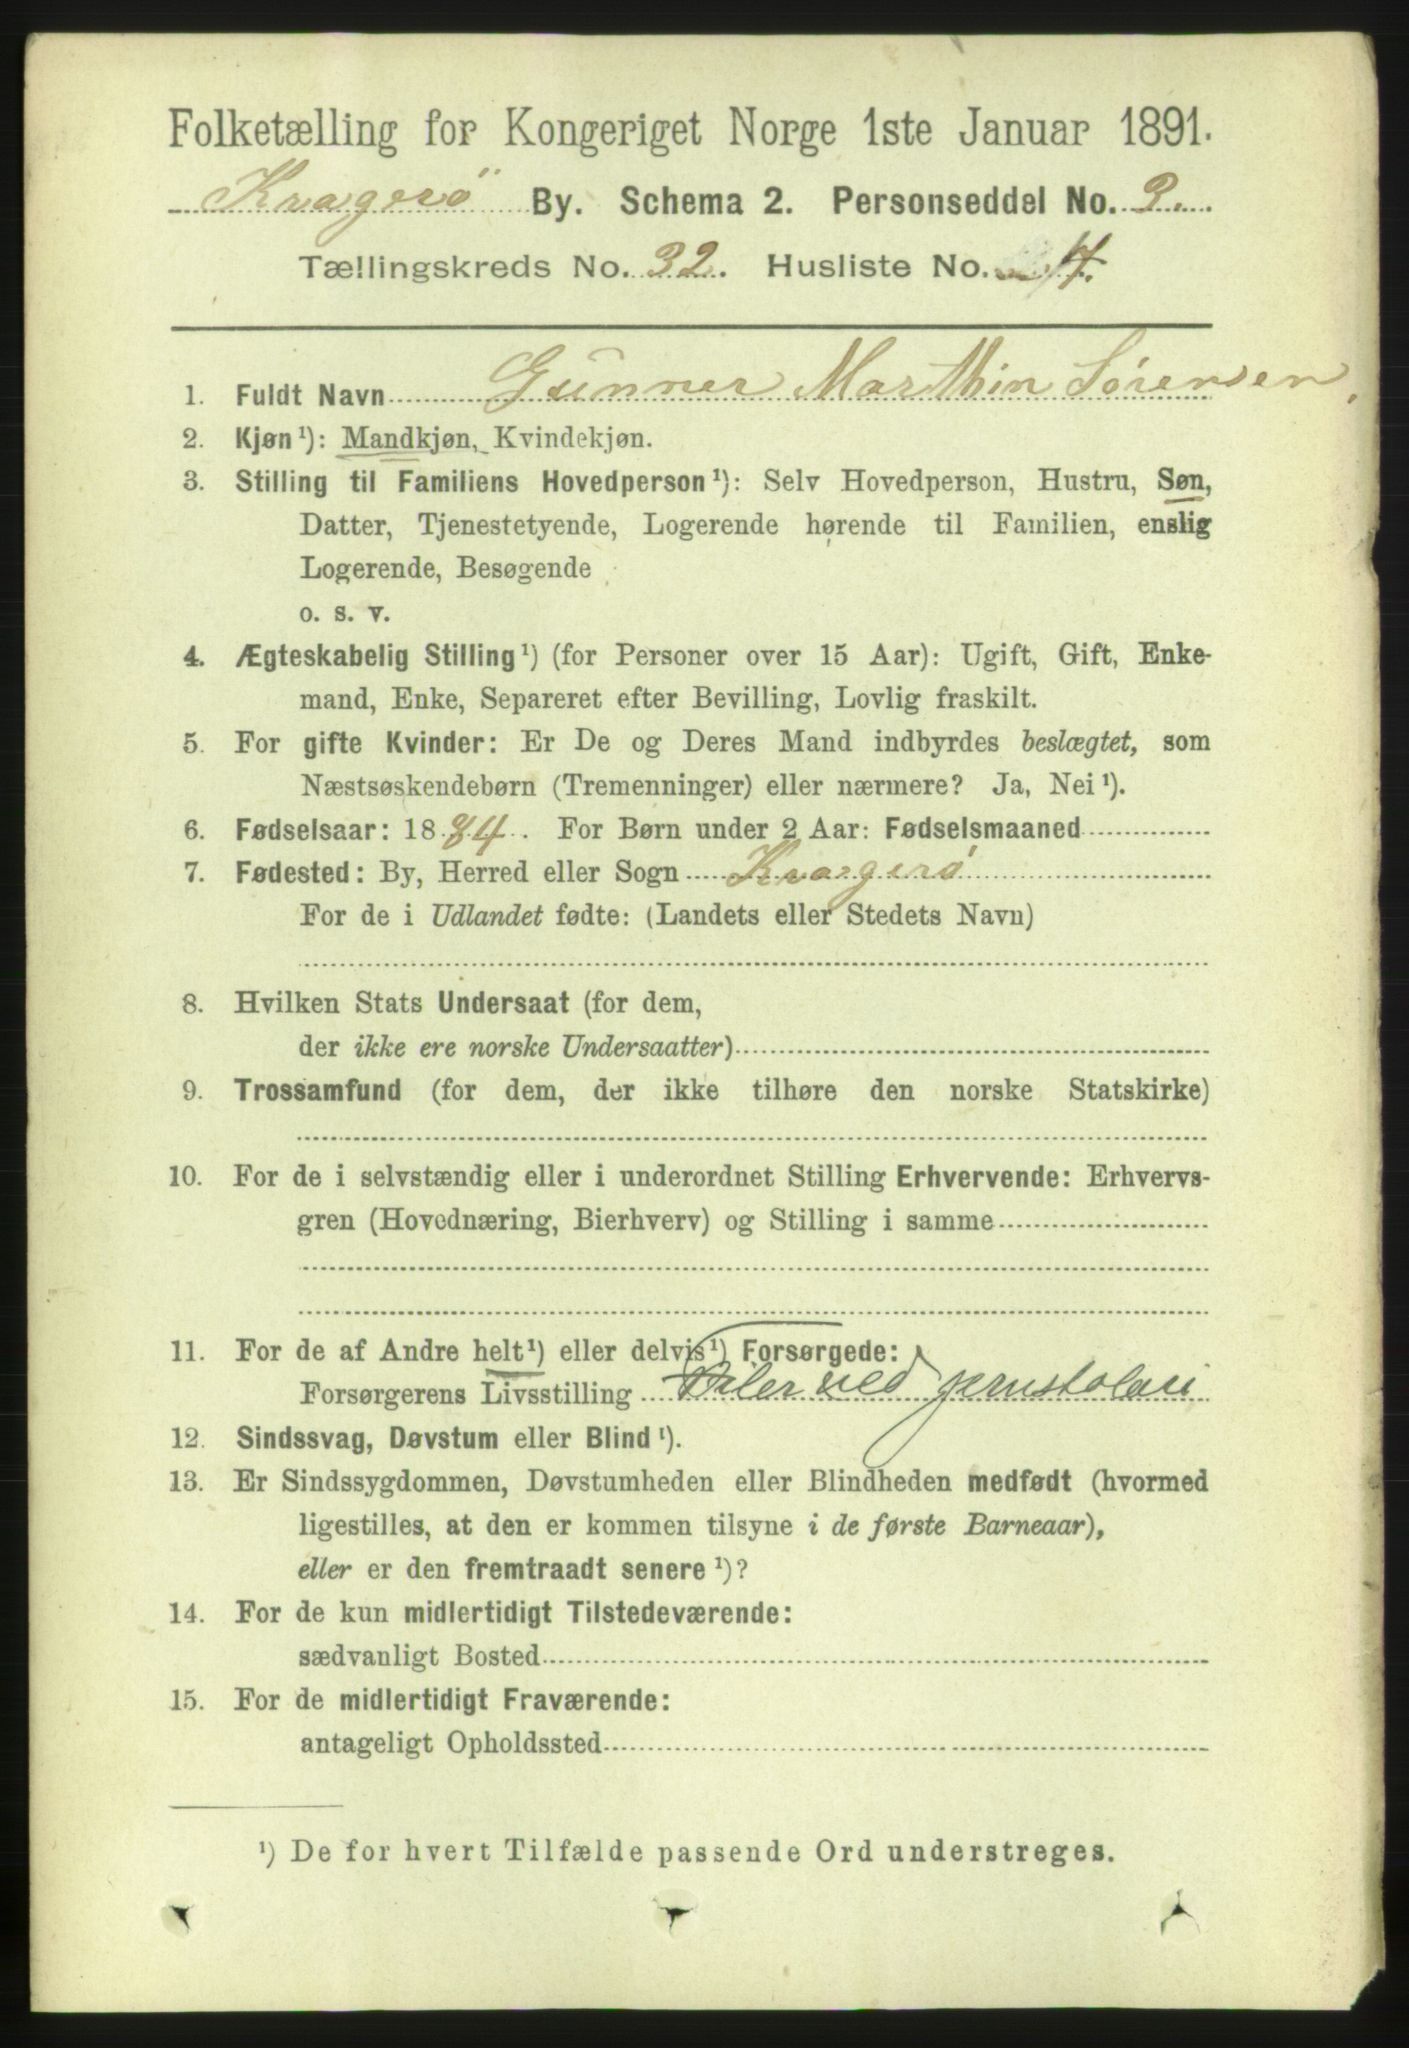 Folketælling for Kongeriget Norge 1ste Januar 1891.
Kragerö By. Schema 2. Personseddel No. 3.
Tællingskreds No. 32. Husliste No. 4.
1. Fuldt Navn Gunner Marthin Sørensen.
2. Kjøn¹): Mandkjøn, Kvindekjøn.
3. Stilling til Familiens Hovedperson¹): Selv Hovedperson, Hustru, Søn,
Datter, Tjenestetyende, Logerende hørende til Familien, enslig
Logerende, Besøgende
o. s. v.
4. Ægteskabelig Stilling¹) (for Personer over 15 Aar): Ugift, Gift, Enke-
mand, Enke, Separeret efter Bevilling, Lovlig fraskilt.
5. For gifte Kvinder: Er De og Deres Mand indbyrdes beslægtet, som
Næstsøskendebørn (Tremenninger) eller nærmere? Ja, Nei¹).
6. Fødselsaar: 1884. For Børn under 2 Aar: Fødselsmaaned
7. Fødested: By, Herred eller Sogn Kragerø
For de i Udlandet fødte: (Landets eller Stedets Navn)
8. Hvilken Stats Undersaat (for dem,
der ikke ere norske Undersaatter)
9. Trossamfund (for dem, der ikke tilhøre den norske Statskirke)
10. For de i selvstændig eller i underordnet Stilling Erhvervende: Erhvervs-
gren (Hovednæring, Bierhverv) og Stilling i samme
11. For de af Andre helt¹) eller delvis¹) Forsørgede:
Forsørgerens Livsstilling ved
12. Sindssvag, Døvstum eller Blind¹).
13. Er Sindssygdommen, Døvstumheden eller Blindheden medfødt (hvormed
ligestilles, at den er kommen tilsyne i de første Barneaar),
eller er den fremtraadt senere¹)?
14. For de kun midlertidigt Tilstedeværende:
sædvanligt Bosted
15. For de midlertidigt Fraværende:
antageligt Opholdssted
¹) De for hvert Tilfælde passende Ord understreges.